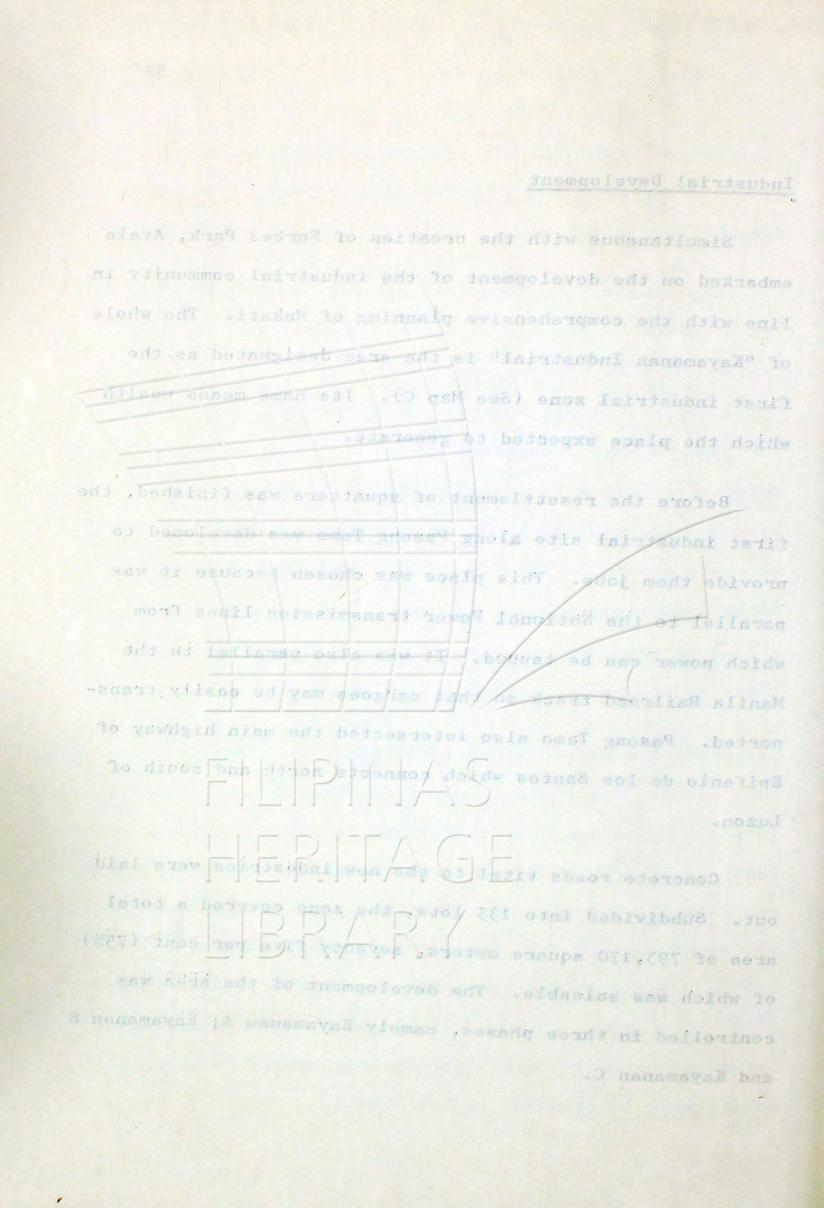 58
Industrial Development
Simultaneous with the creation of Forbes Park, Ayala
embarked on the development of the industrial community in
line with the comprehensive planning of Makati. The whole
of "Kayamanan Industrial" is the area designated as the
first industrial zone (See Map C). Its name means wealth
which the place expected to generate.
Before the resettlement of squatters was finished, the
first industrial site along Pasong Tamo was developed to
provide them jobs. This place was chosen because it was
parallel to the National Power transmission lines from
which power can be tapped. It was also parallel to the
Manila Railroad track so that cargoes may be easily trans-
ported. Pasong Tamo also intersected the main highway of
Epifanio de los Santos which connects north and south of
Luzon.
Concrete roads vital to the new industries were laid
out. Subdivided into 135 lots, the zone covered a total
area of 793,170 square meters, seventy five per cent (75%)
of which was saleable. The development of the area was
controlled in three phases, namely Kayamanan A; Kayamanan B
and Kayamanan C.
FILIPINAS
HERITAGE
LIBRARY